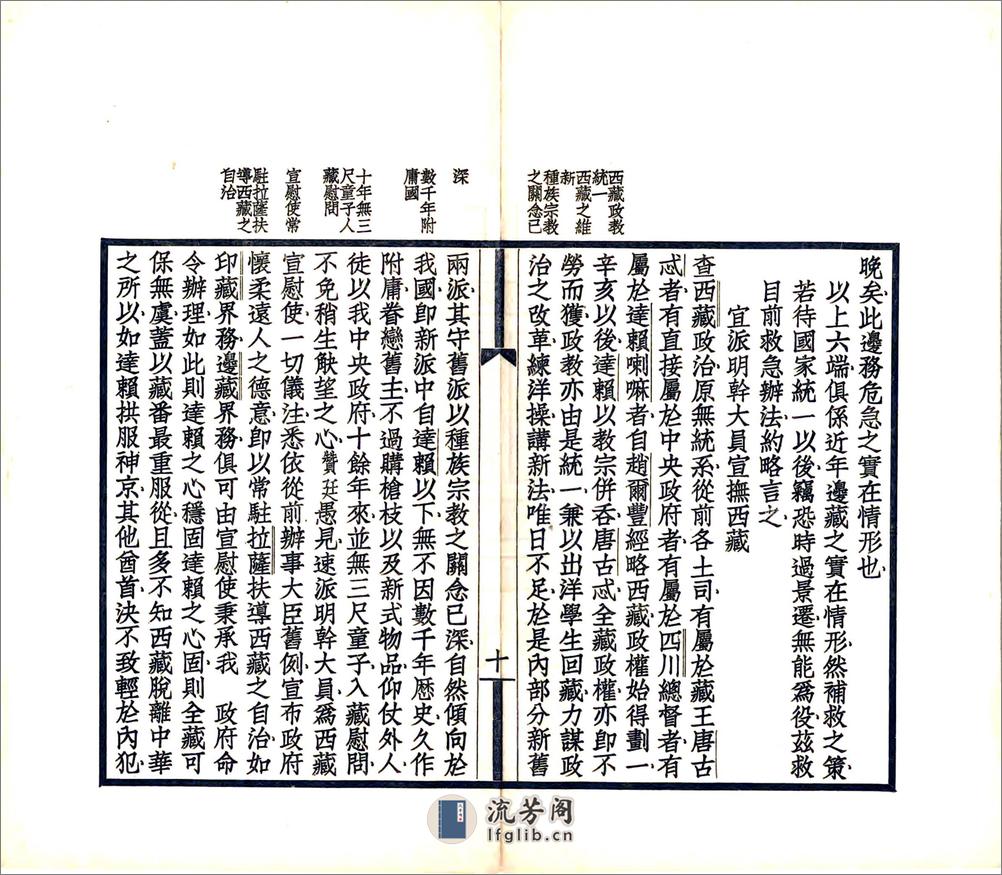 西藏政教
統一
西藏之維
新
種族宗教
之關念已
晚矣此邊務危急之實在情形也
以上六端俱係近年邊藏之實在情形然補救之策
若待國家統一以後竊恐時過景遷無能爲役茲救
目前救急辦法約略言之
宜派明幹大員宣撫西藏
查西藏政治原無統系從前各土司有屬於藏王唐古
忒者有直接屬於中央政府者有屬於四川總督者有
屬於達賴喇嘛者自趙爾豐經略西藏政權始得劃一
辛亥以後達賴以教宗併呑唐古忒全藏政權亦即不
勞而獲政教亦由是統一兼以出洋學生回藏力謀政
治之改革練洋操講新法唯日不足於是內部分新舊
十
深
數千年附
庸國
十年無三
尺童子人
藏慰問
宣慰使常
駐拉薩扶
導西藏之
自治
兩派其守舊派以種族宗教之關念已深自然傾向於
我國即新派中自達賴以下無不因數千年歷史久作
附庸眷戀舊主不過購槍枝以及新式物品仰仗外人
徒以我中央政府十餘年來並無三尺童子入藏慰問
不免稍生觖望之心贊廷愚見速派明幹大員爲西藏
宣慰使一切儀注悉依從前辦事大臣舊例宣布政府
懷柔遠人之德意即以常駐拉薩扶導西藏之自治如
印藏界務邊藏界務俱可由宣慰使秉承我 政府命
令辦理如此則達賴之心穩固達賴之心固則全藏可
保無虞蓋以藏番最重服從且多不知西藏脫離中華
之所以如達賴拱服神京其他酋首決不致輕於內犯
流芳阁
lfglib.cn